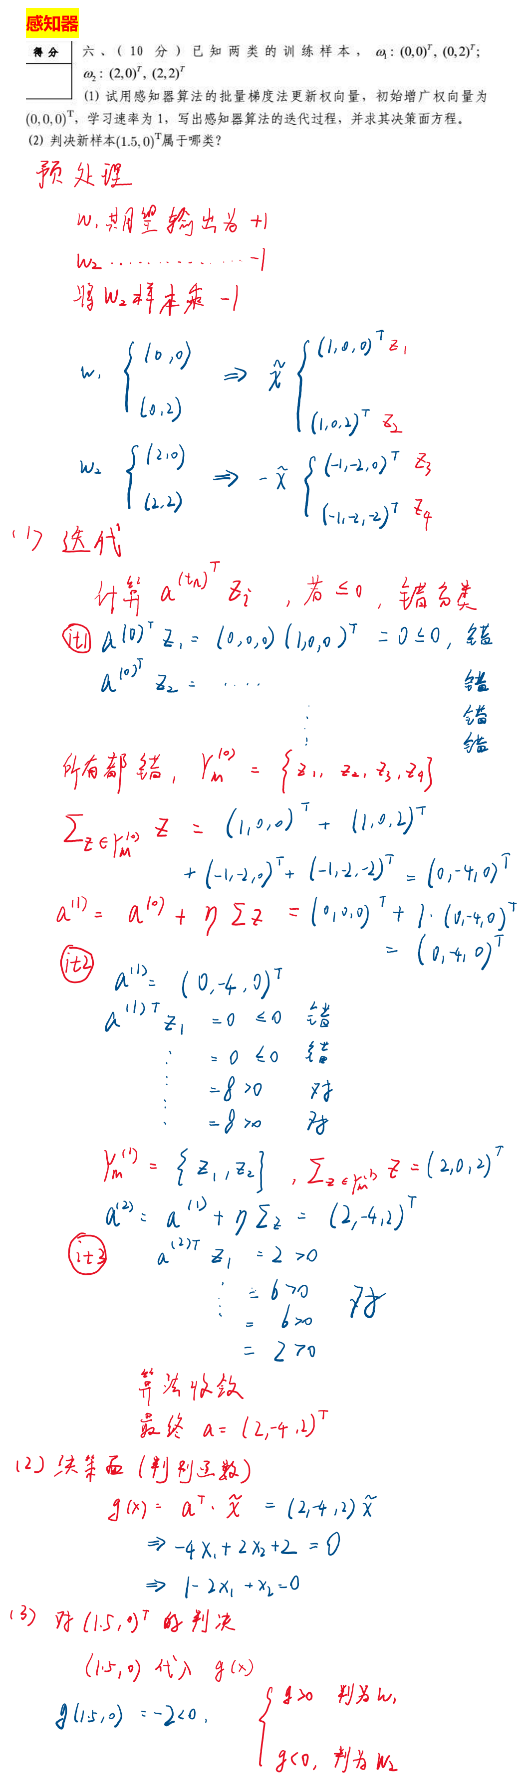 感知器
得 分
六、( 10 分 ) 已 知 两 类 的 训 练 样 本 ， ω₁: (0,0)ᵀ, (0,2)ᵀ;
ω₂: (2,0)ᵀ, (2,2)ᵀ
(1) 试用感知器算法的批量梯度法更新权向量，初始增广权向量为
(0,0,0)ᵀ，学习速率为 1，写出感知器算法的迭代过程，并求其决策面方程。
(2) 判决新样本(1.5, 0)ᵀ属于哪类?
预处理
w₁ 期望输出为 +1
w₂ ............... -1
将 w₂ 样本乘 -1
w₁ { (0,0) ⇒ x̃ { (1,0,0)ᵀ z₁
(0,2) (1,0,2)ᵀ z₂
w₂ { (2,0) ⇒ -x̃ { (-1,-2,0)ᵀ z₃
(2,2) (-1,-2,-2)ᵀ z₄
(1) 迭代
计算 a⁽ᵗⁿ⁾ᵀ zᵢ , 若 ≤0 , 错分类
it1 a(0)ᵀ z₁ = (0,0,0) (1,0,0)ᵀ = 0 ≤ 0, 错
a⁽⁰⁾ᵀ z₂ = ..... 错
⋮ 错
错
所有都错, Yₘ⁽⁰⁾ = {z₁, z₂, z₃, z₄}
∑z∈Yₘ⁽⁰⁾ z = (1,0,0)ᵀ + (1,0,2)ᵀ
+ (-1,-2,0)ᵀ + (-1,-2,-2)ᵀ = (0,-4,0)ᵀ
a⁽¹⁾ = a⁽⁰⁾ + η ∑z = (0,0,0)ᵀ + 1·(0,-4,0)ᵀ
= (0,-4,0)ᵀ
it2 a⁽¹⁾ = (0,-4,0)ᵀ
a⁽¹⁾ᵀ z₁ = 0 ≤ 0 错
⋮ = 0 ≤ 0 错
⋮ = 8 > 0 对
⋮ = 8 > 0 对
Yₘ⁽¹⁾ = {z₁, z₂} , ∑z∈Yₘ⁽¹⁾ z = (2,0,2)ᵀ
a⁽²⁾ = a⁽¹⁾ + η ∑z = (2,-4,2)ᵀ
it3 a⁽²⁾ᵀ z₁ = 2 > 0
⋮ = 6 > 0 对
⋮ = 6 > 0
= 2 > 0
算法收敛
最终 a = (2,-4,2)ᵀ
(2) 决策面 (判别函数)
g(x) = aᵀ · x̃ = (2,-4,2) x̃
⇒ -4x₁ + 2x₂ + 2 = 0
⇒ 1 - 2x₁ + x₂ = 0
(3) 对 (1.5, 0)ᵀ 的判决
(1.5, 0) 代入 g(x)
g(1.5, 0) = -2 < 0 , { g>0 判为 w₁
g<0, 判为 w₂